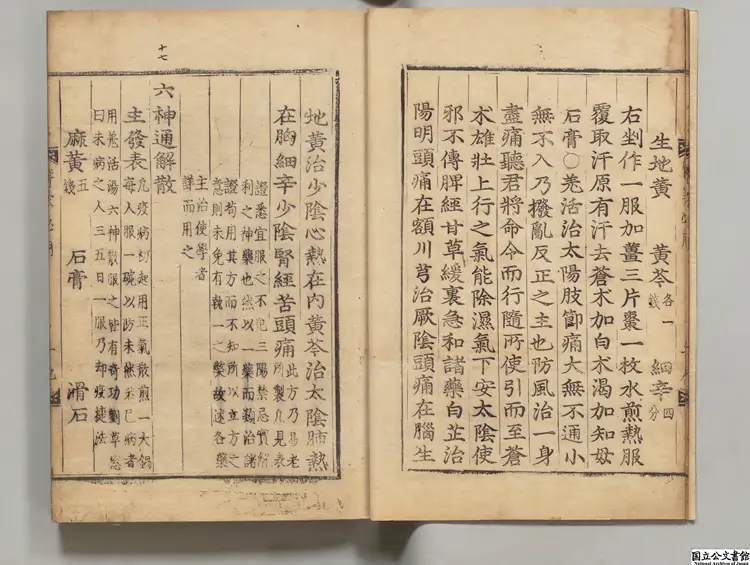 生地黃 黃芩各一錢 細辛四分
右剉作一服加薑三片棗一枚水煎熱服
覆取汗原有汗去蒼朮加白朮渴加知母
石膏〇羌活治太陽肢節痛大無不通小
無不入乃撥亂反正之主也防風治一身
盡痛聽君將命令而行隨所使引而至蒼
朮雄壯上行之氣能除濕氣下安太陰使
邪不傳脾經甘草緩裏急和諸藥白芷治
陽明頭痛在額川芎治厥陰頭痛在腦生
十七
地黃治少陰心熱在內黃芩治太陰肺熱
在胸細辛少陰腎經苦頭痛
此方乃易老
所製凡見表
證悉宜服之不犯三陽禁忌實解
利之神藥也然以一藥而治諸
證苟用其方而不知所以立方之
意則未免有執一之弊故述各藥
主治使學者
謹而用之
六神通解散
主發表
凡疫病初起用正氣散煎一大鍋
每人服一碗以防未然若已病者
用羌活湯六神散服之皆有奇功劉草窓
曰未病之人三五日一服乃却疫捷法
麻黃五錢 石膏 滑石
国立公文書館
National Archives of Japan